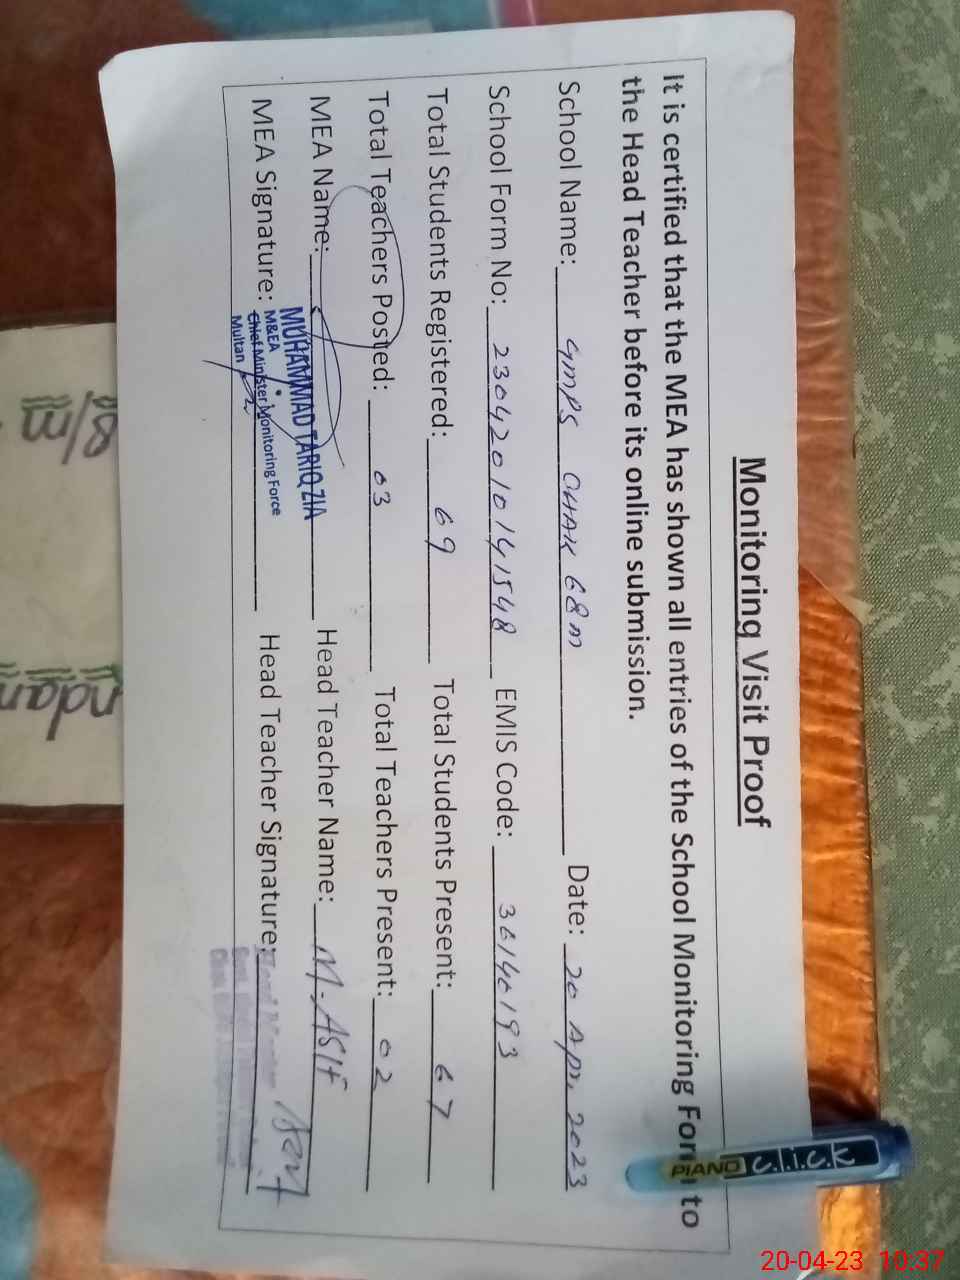 Monitoring Visit Proof
It is certified that the MEA has shown all entries of the School Monitoring Form to
the Head Teacher before its online submission.
School Name: GMPS CHAK 68m Date: 20 Apr. 2023
School Form No: 230420101 41548 EMIS Code: 36140193
Total Students Registered: 69 Total Students Present: 67
Total Teachers Posted: 03 Total Teachers Present: 02
MEA Name: MUHAMMAD TARIQ ZIA Head Teacher Name: M. ASIF
MEA Signature: Head Teacher Signature:
M&EA
Chief Minister Monitoring Force
Multan
PIANO click
8/m
ndan
20-04-23 10:37